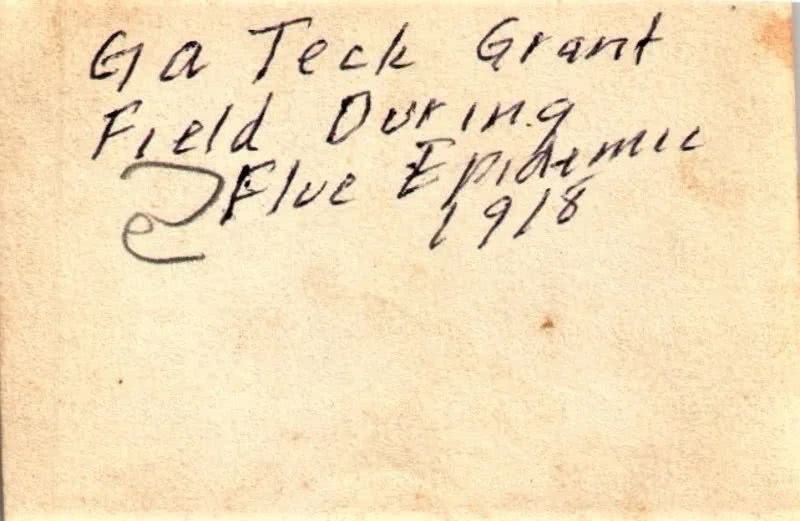 Ga Teck Grant
Field During
Flue Epidemic
1918